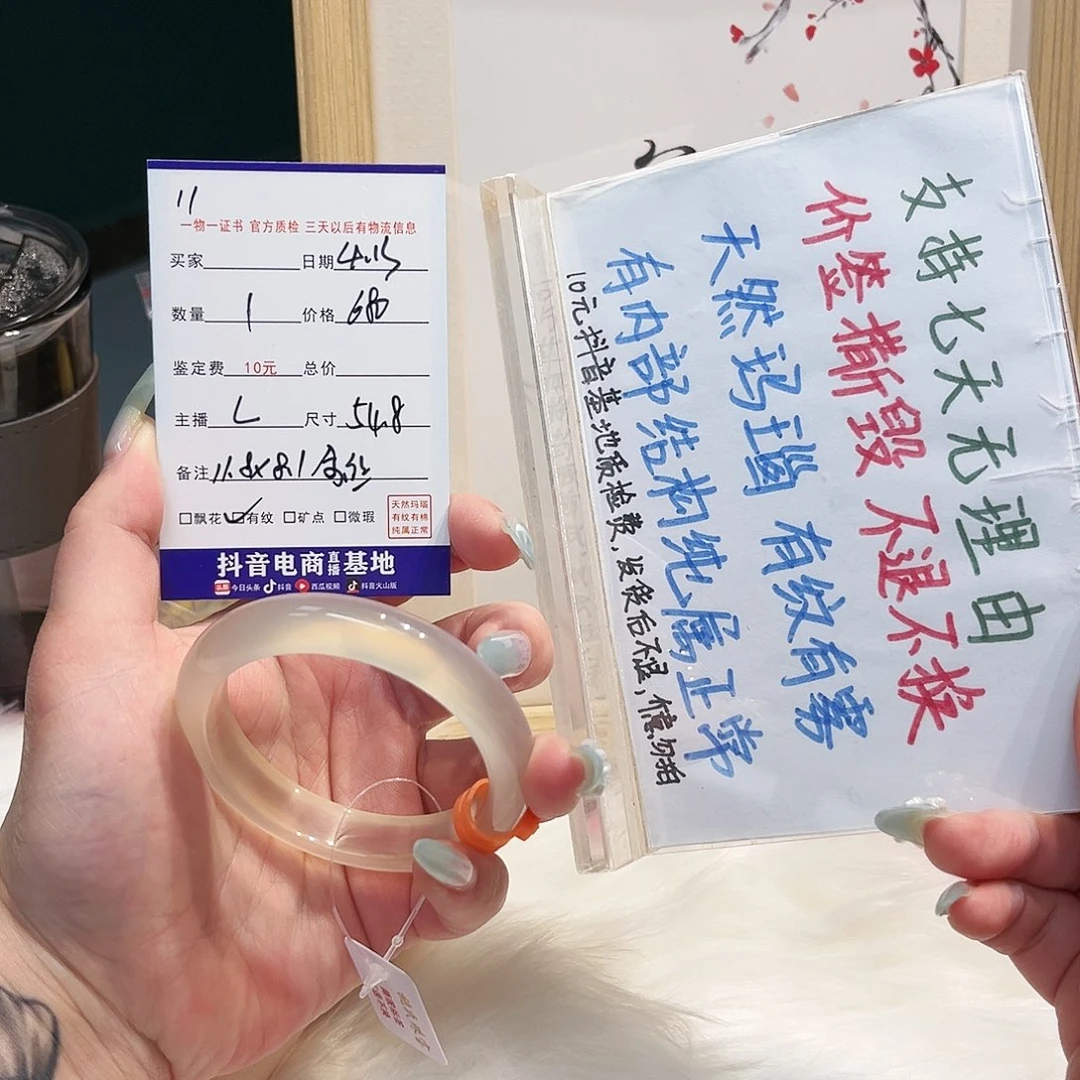 11
一物一证书 官方质检 三天以后有物流信息
买家 日期 4.15
数量 1 价格 680
鉴定费 10元 总价
主播 L 尺寸 54.8
备注 11.8x8.1
□飘花 ☑有纹 □矿点 □微瑕
天然玛瑙
有纹有棉
纯属正常
抖音电商直播基地
头条 今日头条 抖音 西瓜视频 抖音火山版
支持七天无理由
价签撕毁 不退不换
天然玛瑙 有纹有雾
有内部结构纯属正常
10元抖音基地质检费,发货后不退,慎勿拍